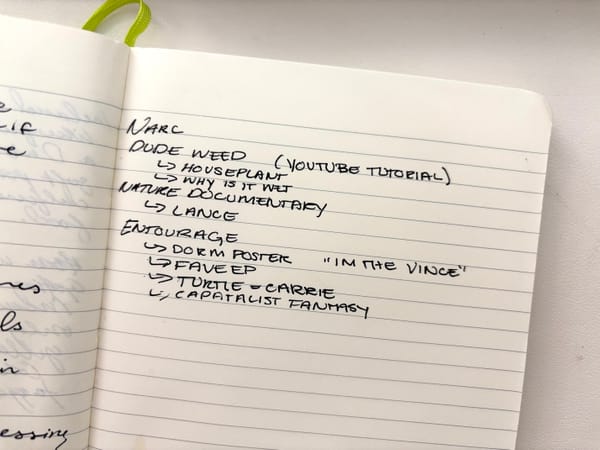 e
if
e
res
ls
in
essing
NARC
DUDE WEED (YOUTUBE TUTORIAL)
↳ HOUSEPLANT
↳ WHY IS IT WET
NATURE DOCUMENTARY
↳ LANCE
ENTOURAGE
↳ DORM POSTER "IM THE VINCE"
↳ FAVE EP
↳ TURTLE = CARRIE
↳ CAPATALIST FANTASY